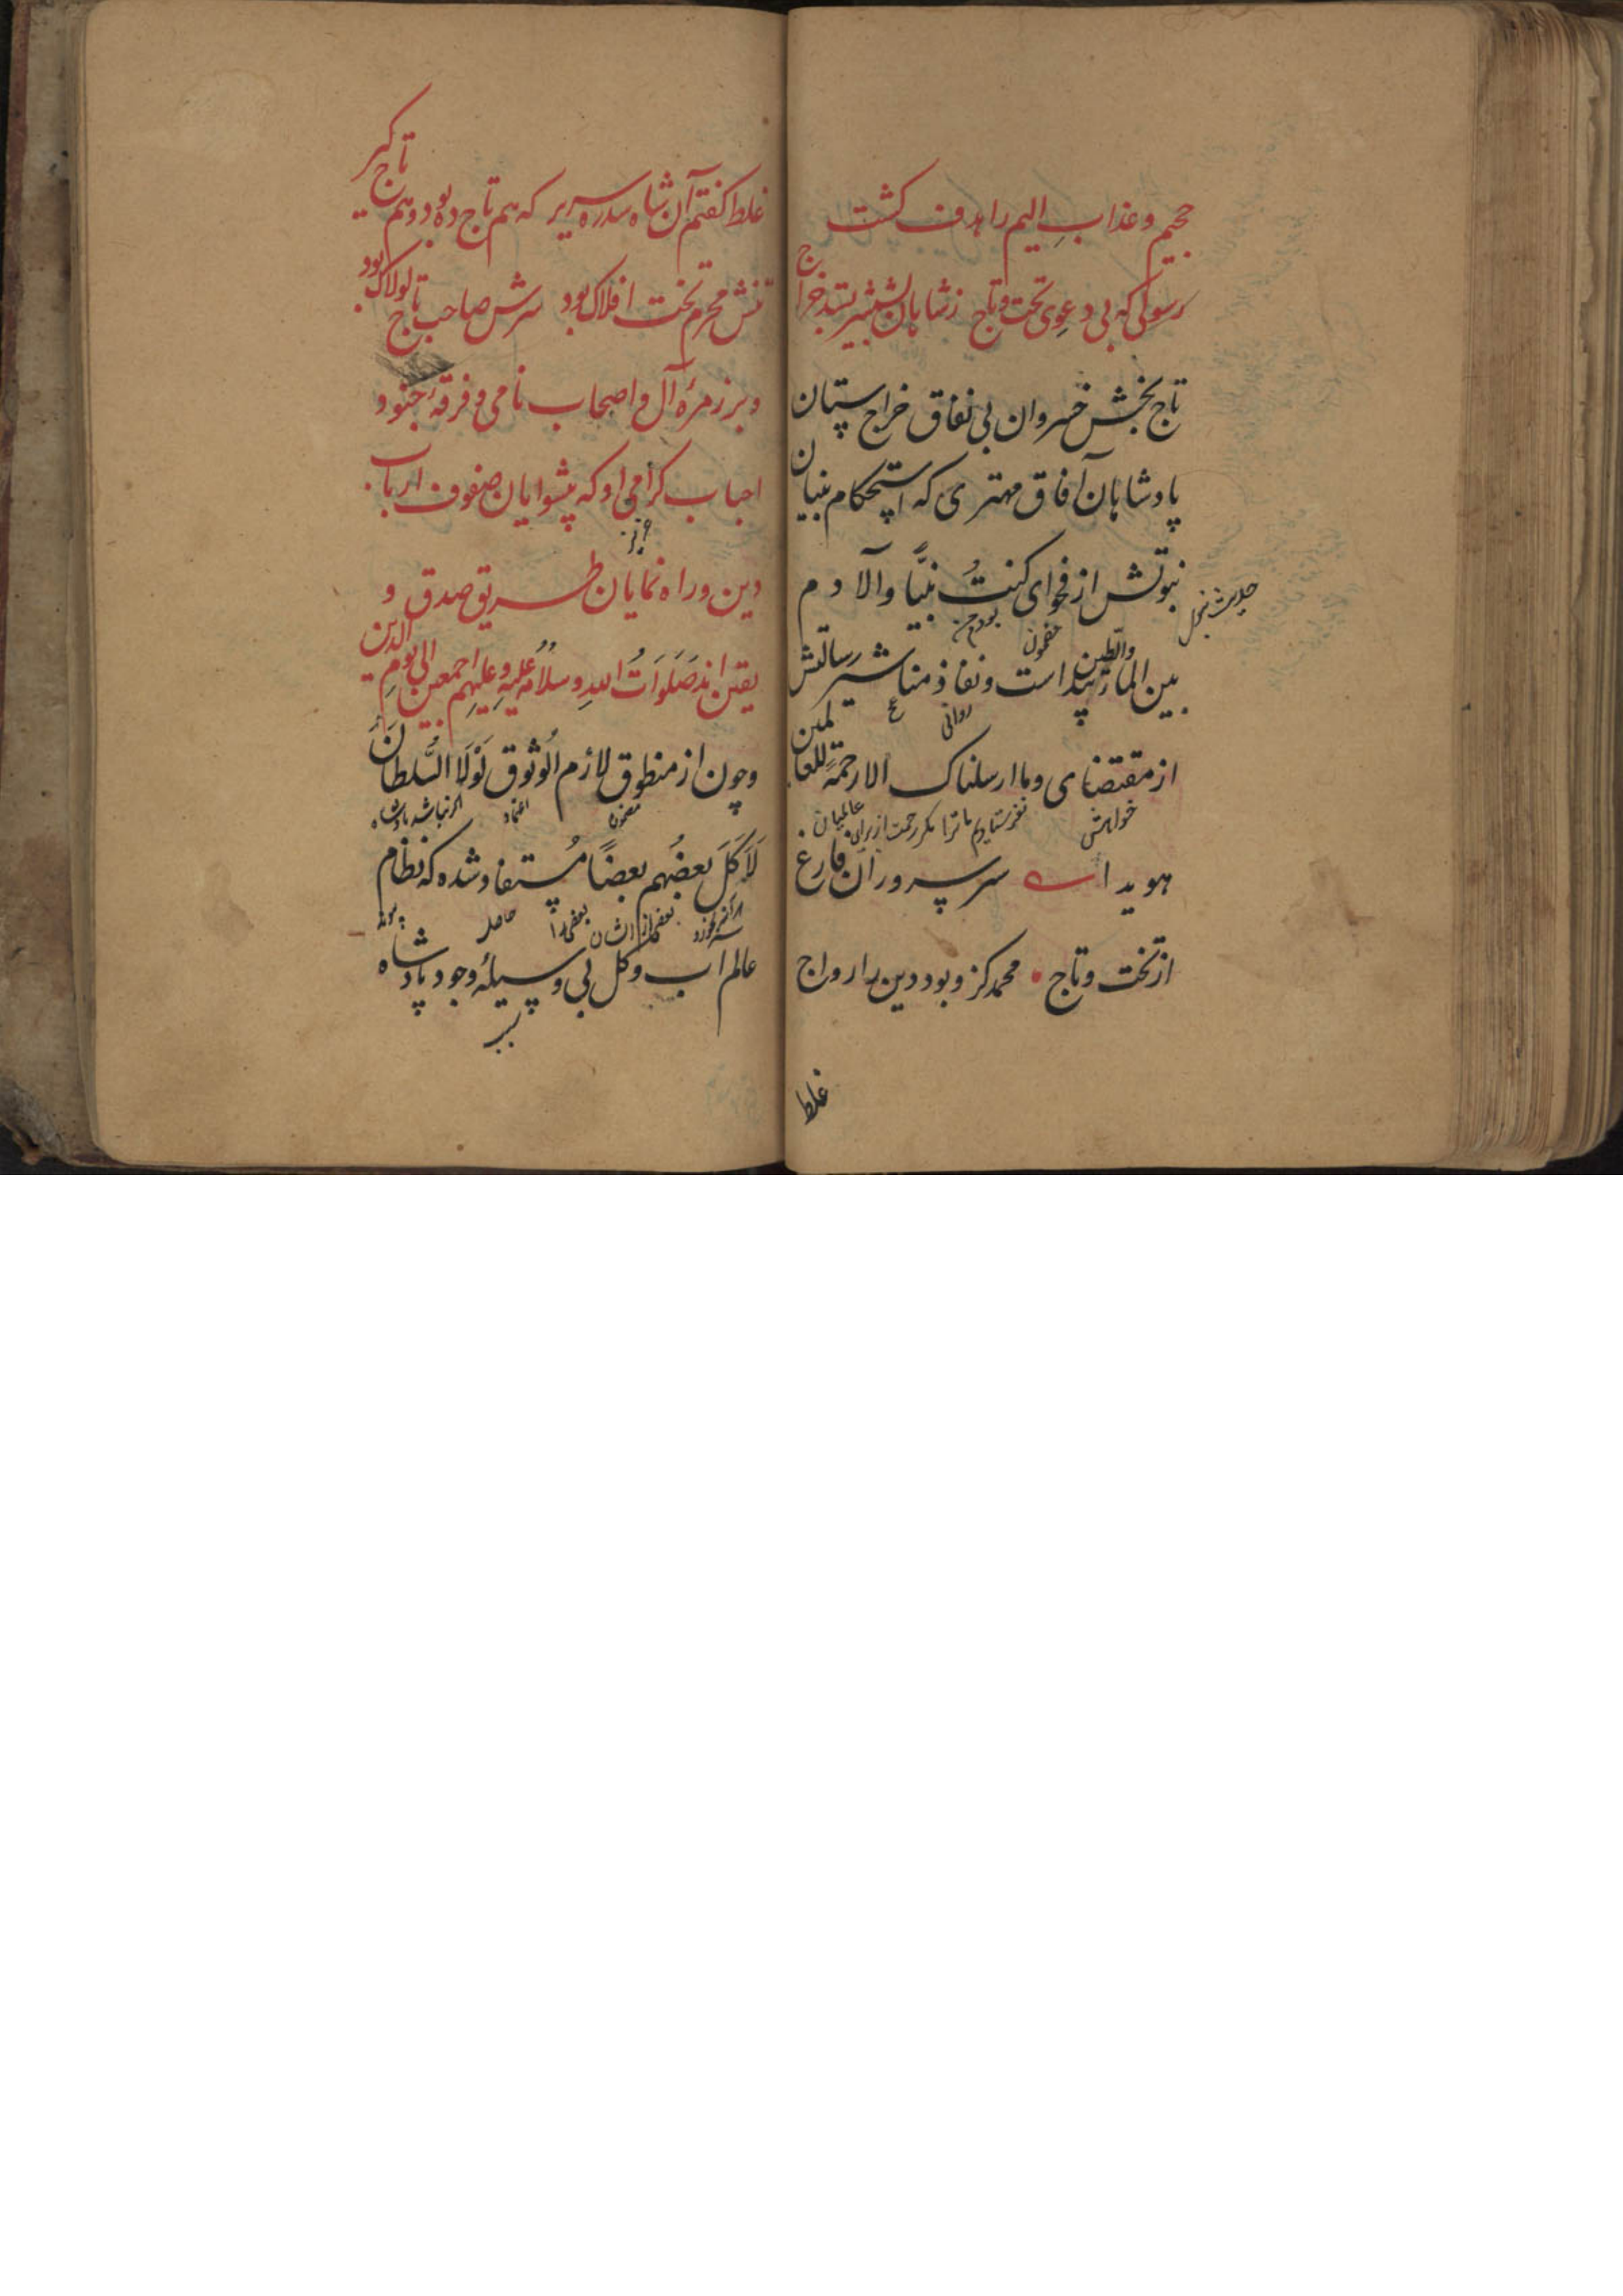 جحیم و عذابِ الیم را هدف کشت
رسولی که بی دعوی تخت و تاج زشاهان بشمشیر بستد خراج
تاج بخش خسروان بی نفاق خراج ستان
پادشاهان آفاق مهتری که استحکام بنیان
نبوتش از فحوای کنتُ نبیًّا والآدم
حدیث
بودم من
مضمون
بین الماء والطین پیدا است و نفاذ مناشیر رسالتش
روانی
از مقتضای وما ارسلناک الا رحمةً للعالمین
خواهش
نفرستادیم ما ترا مکر رحمت از برای عالمیان
هویداست سر سروران فارغ
از تخت و تاج • محمد کزو بود دین را رواج
غلط
غلط کفتم آن شاه سدره سریر که هم تاج ده بود و هم تاج کیر
تنش محرم تخت افلاک بود سرش صاحب تاج لولاک بود
و بر زمرهٔ آل و اصحاب نامی و فرقهٔ جنود و
احباب کرامی او که پیشوایان صفوف ارباب
دین و راه نمایان طریق صدق و
یقین اند صَلَوَاتُ اللهِ وسلامُهُ علیهِ و علیهِم اجمعین الی یومِ الدین
و چون از منطوق لازم الوثوق لَوْلَا السُّلطانُ
مضمون
اعتماد
اکر نباشد پادشاه
لَاَکَلَ بعضُهم بعضًا مُستفاد شده که نظام
بعضی از ایشان
بعضی را
حاصل
عالم آب و کل بی وسیلهٔ وجود پادشاه
سبب